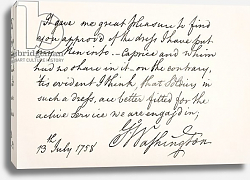 It gave me great pleasure to find
you approved of the dress I have put
into - Caprice and Whim
had no share in it - on the contrary,
'tis evident I think, that Soldiers in
such a dress, are better fitted for the
active Service we are engag'd in;
13th July 1758
G Washington